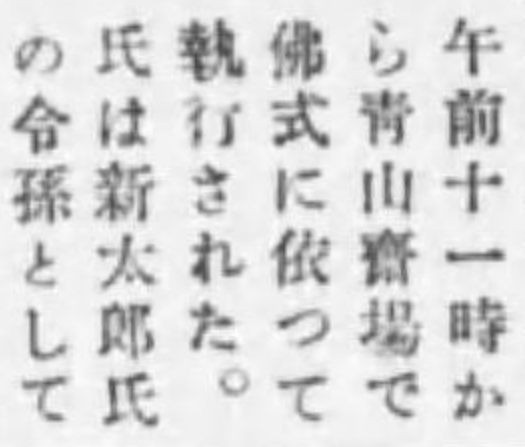 午前十一時か
ら青山齋場で
佛式に依つて
執行された。
氏は新太郎氏
の令孫として